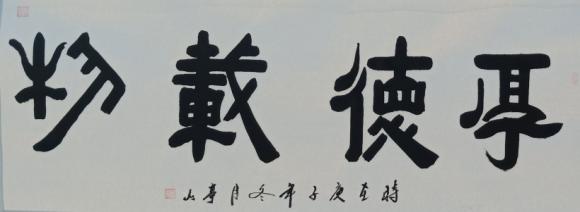 厚德載物
時在庚子年冬月亭山